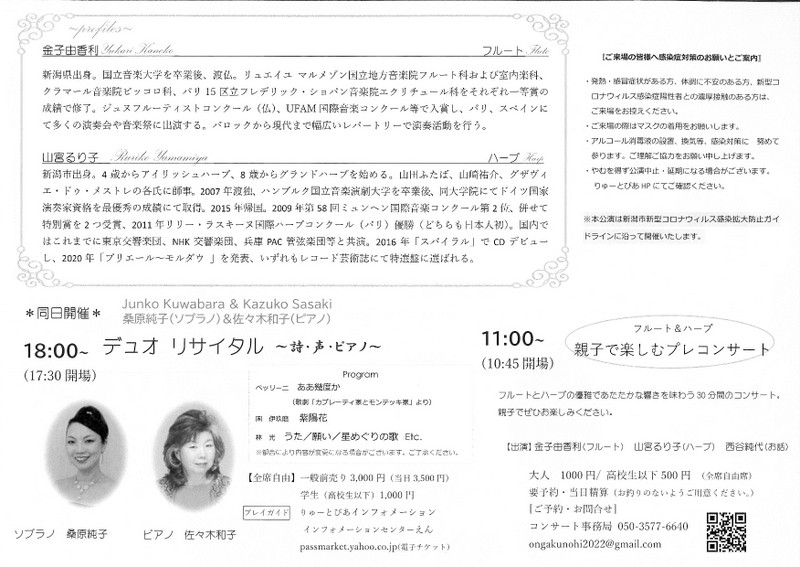 ~profiles~
金子由香利 Yukari Kaneko フルート Flute
新潟県出身。国立音楽大学を卒業後、渡仏。リュエイユ マルメゾン国立地方音楽院フルート科および室内楽科、
クラマール音楽院ピッコロ科、パリ 15 区立フレデリック・ショパン音楽院エクリチュール科をそれぞれ一等賞の
成績で修了。ジュヌフルーティストコンクール（仏）、UFAM 国際音楽コンクール等で入賞し、パリ、スペインに
て多くの演奏会や音楽祭に出演する。バロックから現代まで幅広いレパートリーで演奏活動を行う。
山宮るり子 Ruriko Yamamiya ハープ Harp
新潟市出身。4 歳からアイリッシュハープ、8 歳からグランドハープを始める。山田ふたば、山崎祐介、グザヴィ
エ・ドゥ・メストレの各氏に師事。2007 年渡独、ハンブルク国立音楽演劇大学を卒業後、同大学院にてドイツ国家
演奏家資格を最優秀の成績にて取得。2015 年帰国。2009 年第 58 回ミュンヘン国際音楽コンクール第 2 位、併せて
特別賞を 2 つ受賞、2011 年リリー・ラスキーヌ国際ハープコンクール（パリ）優勝（どちらも日本人初）。国内で
はこれまでに東京交響楽団、NHK 交響楽団、兵庫 PAC 管弦楽団等と共演。2016 年「スパイラル」で CD デビュー
し、2020 年「プリエール〜モルダウ 」を発表、いずれもレコード芸術誌にて特選盤に選ばれる。
[ご来場の皆様へ感染症対策のお願いとご案内]
・発熱・感冒症状がある方、体調に不安のある方、新型コ
ロナウィルス感染症陽性者との濃厚接触のある方は、
ご来場をお控えください。
・ご来場の際はマスクの着用をお願いします。
・アルコール消毒液の設置、換気等、感染対策に 努めて
参ります。ご理解ご協力をお願い申し上げます。
・やむを得ず公演中止・延期になる場合がございます。
りゅーとぴあ HP にてご確認ください。
※本公演は新潟市新型コロナウィルス感染拡大防止ガイ
ドラインに沿って開催いたします。
＊同日開催＊
Junko Kuwabara & Kazuko Sasaki
桑原純子（ソプラノ）＆佐々木和子（ピアノ）
18:00~ デュオ リサイタル 〜詩・声・ピアノ〜
(17:30 開場)
Program
ベッリーニ ああ幾度か
（歌劇「カプレーティ家とモンテッキ家」より）
團 伊玖磨 紫陽花
林 光 うた／願い／星めぐりの歌 Etc.
※都合により内容が変更になる場合がございます。ご了承ください。
【全席自由】一般前売り 3,000 円（当日 3,500 円）
学生（高校生以下）1,000 円
プレイガイド りゅーとぴあインフォメーション
インフォメーションセンターえん
passmarket.yahoo.co.jp(電子チケット)
ソプラノ 桑原純子 ピアノ 佐々木和子
11:00~
(10:45 開場)
フルート＆ハープ
親子で楽しむプレコンサート
フルートとハープの優雅であたたかな響きを味わう 30 分間のコンサート。
親子でぜひお楽しみください。
【出演】金子由香利（フルート） 山宮るり子（ハープ） 西谷純代（お話）
大人 1000 円/ 高校生以下 500 円 （全席自由席）
要予約・当日精算（お釣りのないようご用意ください。）
[ご予約・お問合せ]
コンサート事務局 050-3577-6640
ongakunohi2022@gmail.com